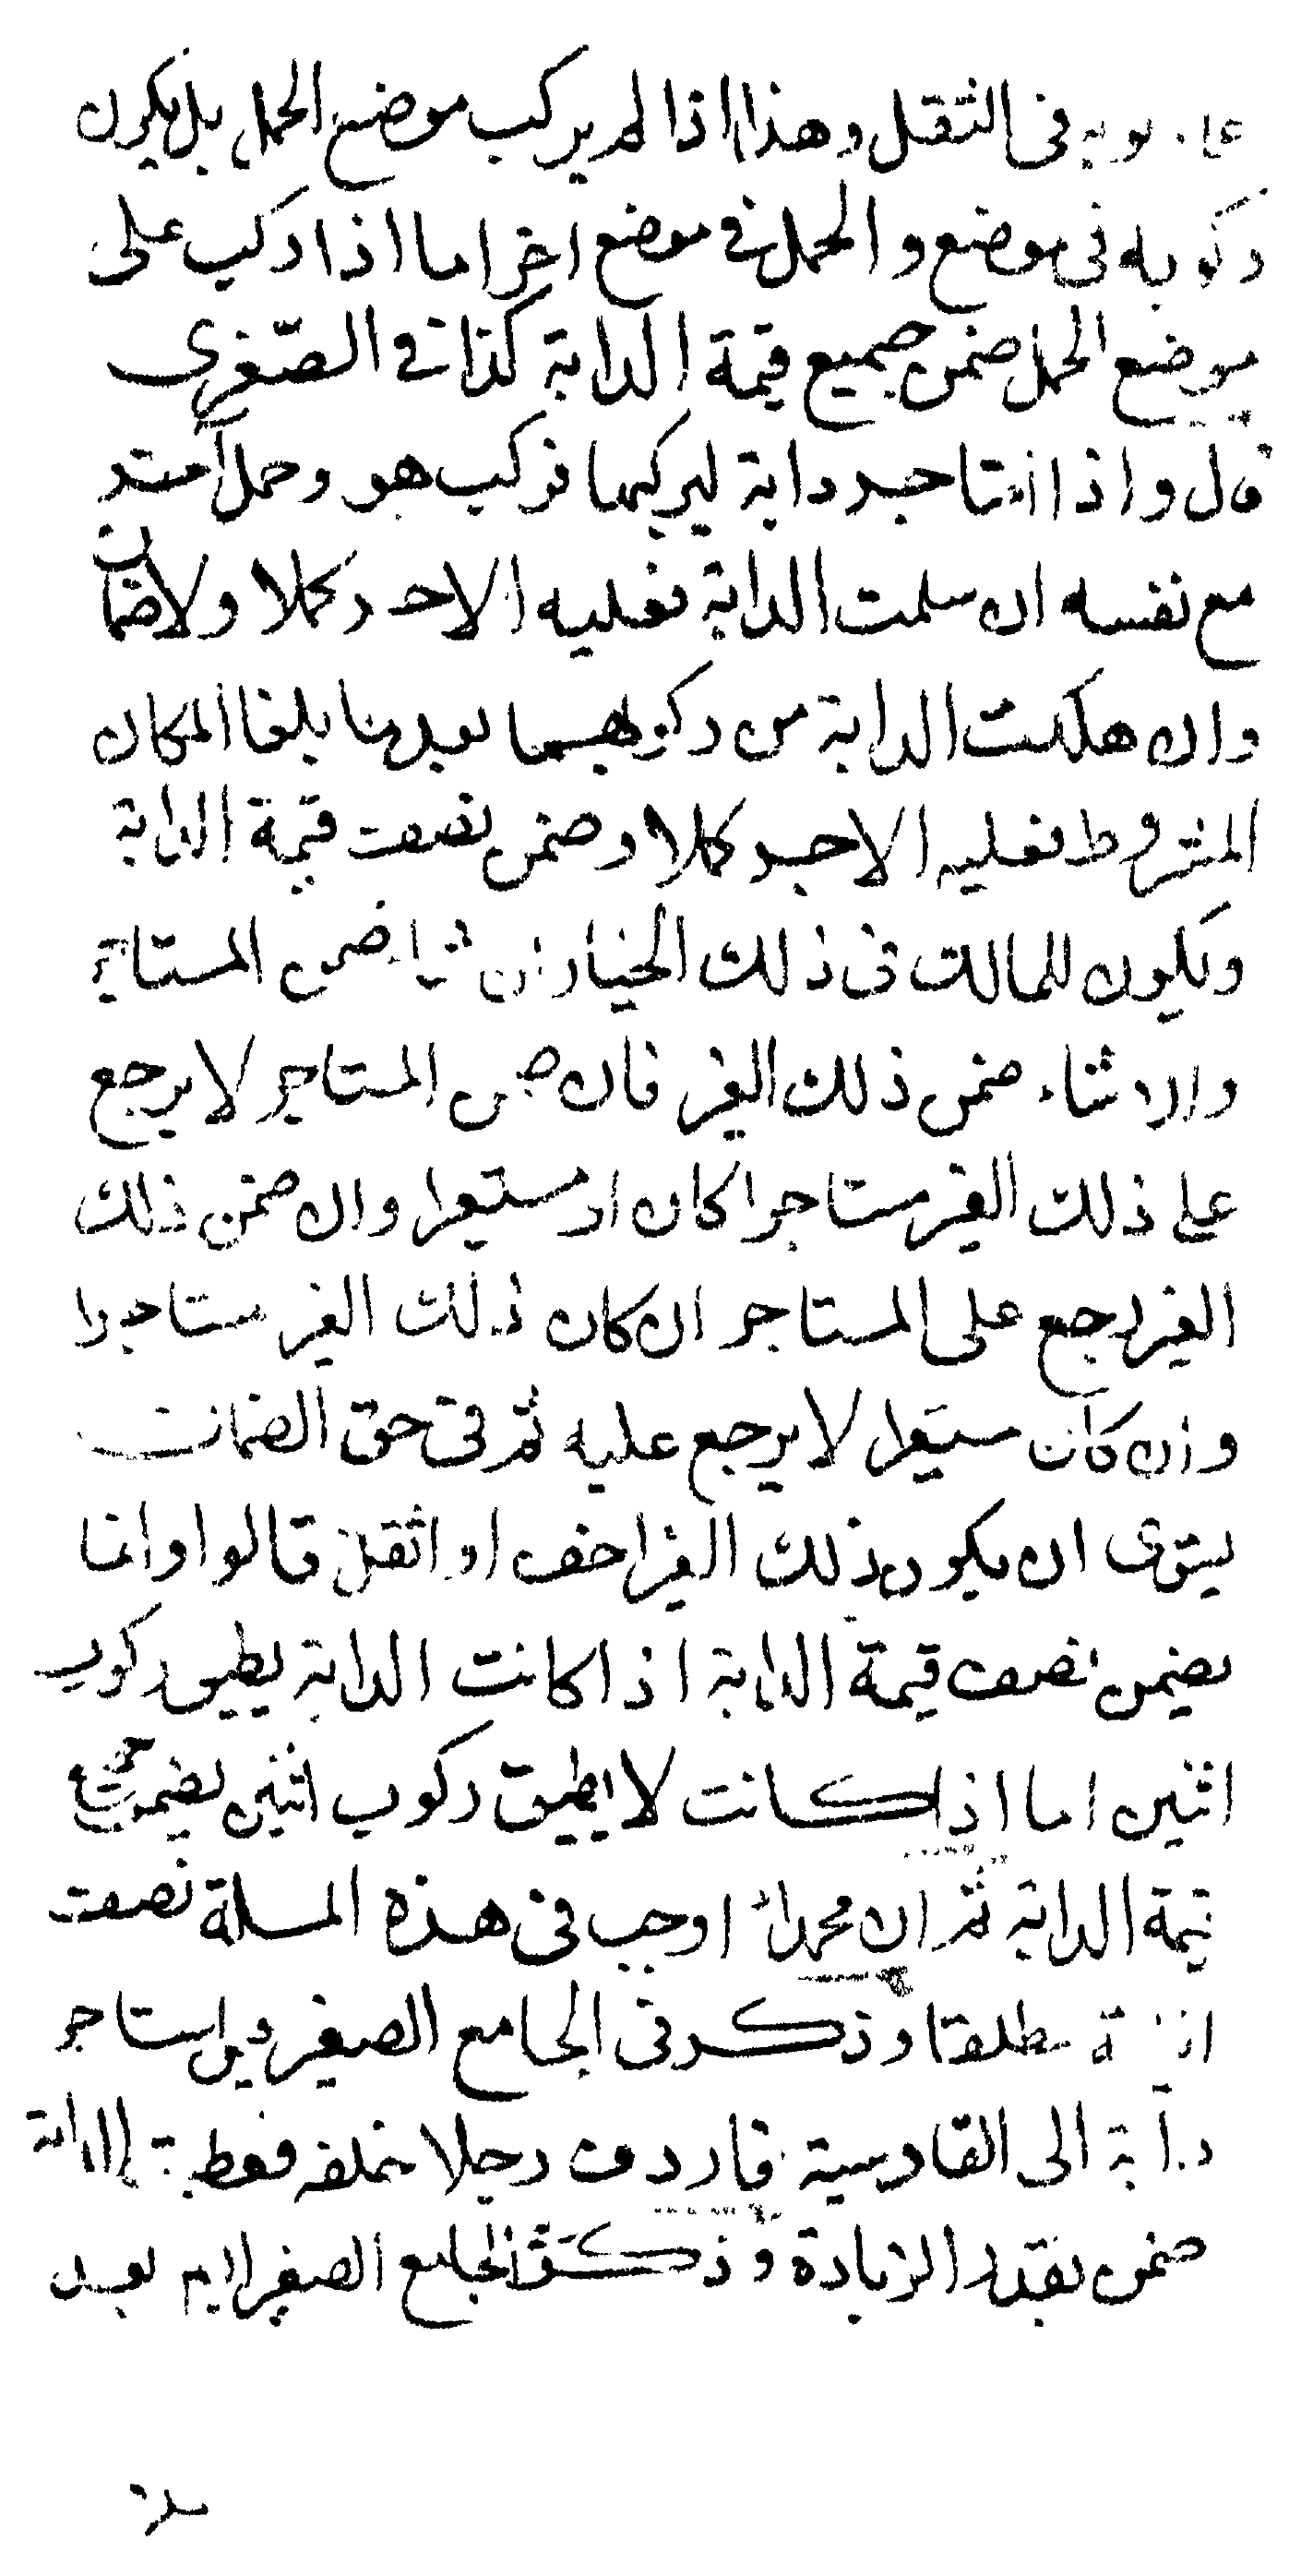 ركوبه في الثقل وهذا اذا لم يركب موضع الحمل بل يكون
ركوبه في موضع والحمل في موضع اخر اما اذا ركب على
موضع الحمل ضمن جميع قيمة الدابة كذا في الصغرى
قال واذا استاجر دابة ليركبها فركب هو وحمل اخر
مع نفسه ان سلمت الدابة فعليه الاجر كملا ولا ضمان
وان هلكت الدابة من ركوبهما بعد ما بلغا المكان
المشروط فعليه الاجر كملا وضمن نصف قيمة الدابة
ويكون للمالك في ذلك الخيار ان شاء ضمن المستاجر
وان شاء ضمن ذلك الغير فان ضمن المستاجر لا يرجع
على ذلك الغير مستاجرا كان او مستعيرا وان ضمن ذلك
الغير رجع على المستاجر ان كان ذلك الغير مستاجرا
وان كان مستعيرا لا يرجع عليه ثم في حق الضمان
يستوى ان يكون ذلك الغير اخف او اثقل قالوا وانما
يضمن نصف قيمة الدابة اذا كانت الدابة يطيق ركوب
اثنين اما اذا كانت لا يطيق ركوب اثنين يضمن جميع
قيمة الدابة ثم ان محمدا اوجب في هذه المسلة نصف
القيمة مطلقا وذكر في الجامع الصغير استاجر
دابة الى القادسية فاردف رجلا خلفه فعطبت الدابة
ضمن بقدر الزيادة وذكر في الجامع الصغير بعد